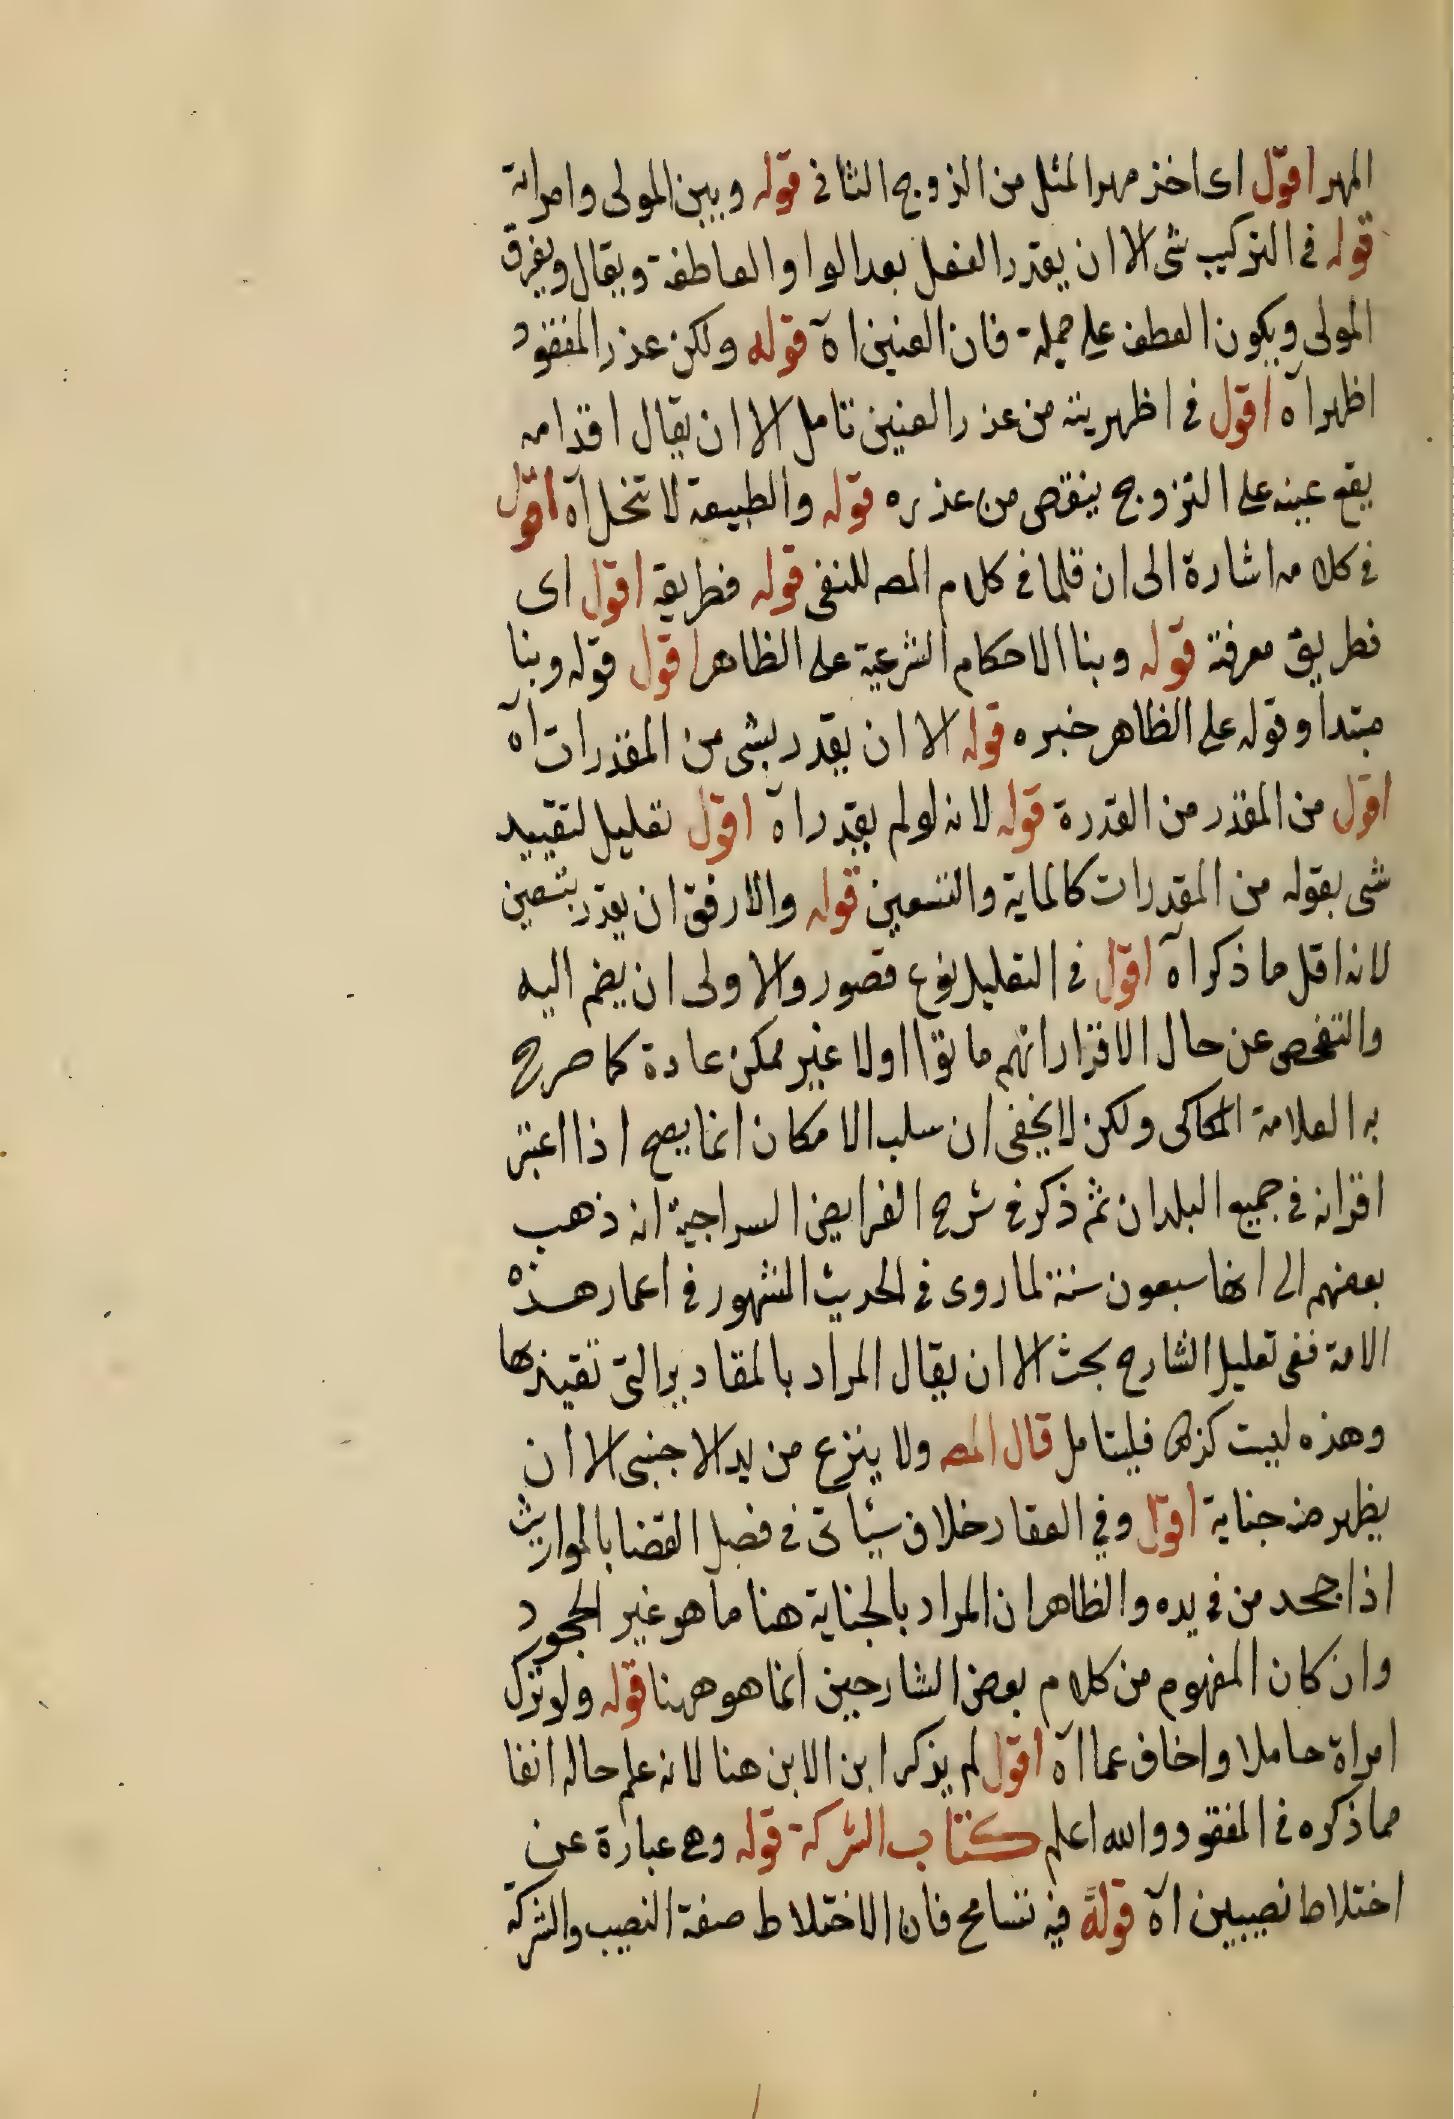 المهر اقول اى اخذ مهر المثل من الزوج الثانى قوله وبين المولى وامراته
قوله فى التركيب شى الا ان يقدر الفعل بعد الواو العاطفة ويقال ويفرق
المولى ويكون العطف على جملة فان العنين اه قوله ولكن عذر المفقود
اظهر اه اقول فى اظهريته من عذر العنين تامل الا ان يقال اقدامه
يقع عينه على التزوج ينقص من عذره قوله والطبيعة لا تخل اه اقول
فى كلامه اشارة الى ان قلما فى كلام المص للنفى قوله فطريقه اقول اى
فطريق معرفته قوله وبنا الاحكام الشرعية على الظاهر اقول قوله وبنا
مبتدأ وقوله على الظاهر خبره قوله الا ان يقدر بشى من المقدرات اه
اقول من المقدر من القدرة قوله لانه لو لم يقدر اه اقول تعليل لتقييد
شى بقوله من المقدرات كالماية والتسعين قوله والارفق ان يقدر بتسعين
لانه اقل ما ذكر اه اقول فى التعليل نوع قصور والاولى ان يضم اليه
والتفحص عن حال الاقران انهم ماتوا اولا غير ممكن عادة كما صرح
به العلامة الكاكى ولكن لا يخفى ان سلب الامكان انما يصح اذا اعتبر
اقرانه فى جميع البلدان ثم ذكر فى شرح الفرايض السراجية انه ذهب
بعضهم الى انها سبعون سنة لما روى فى الحديث المشهور فى اعمار هذه
الامة ففى تعليل الشارح بحث الا ان يقال المراد بالمقادير التى تقيدها
وهذه ليست كذلك فليتامل قال المص ولا ينزع من يد الاجنبى الا ان
يظهر منه جناية اقول وفى العقار خلاف سيأتى فى فصل القضا بالمواريث
اذا جحد من فى يده والظاهر ان المراد بالجناية هنا ما هو غير الجحود
وان كان المفهوم من كلام بعض الشارحين انما هو ههنا قوله ولو ترك
امراة حاملا واخاف عما اه اقول لم يذكر ابن الابن هنا لانه علم حاله انفا
مما ذكره فى المفقود والله اعلم كتاب الشركة قوله وهى عبارة عن
اختلاط نصيبين اه قوله فيه تسامح فان الاختلاط صفة النصيب والشركة